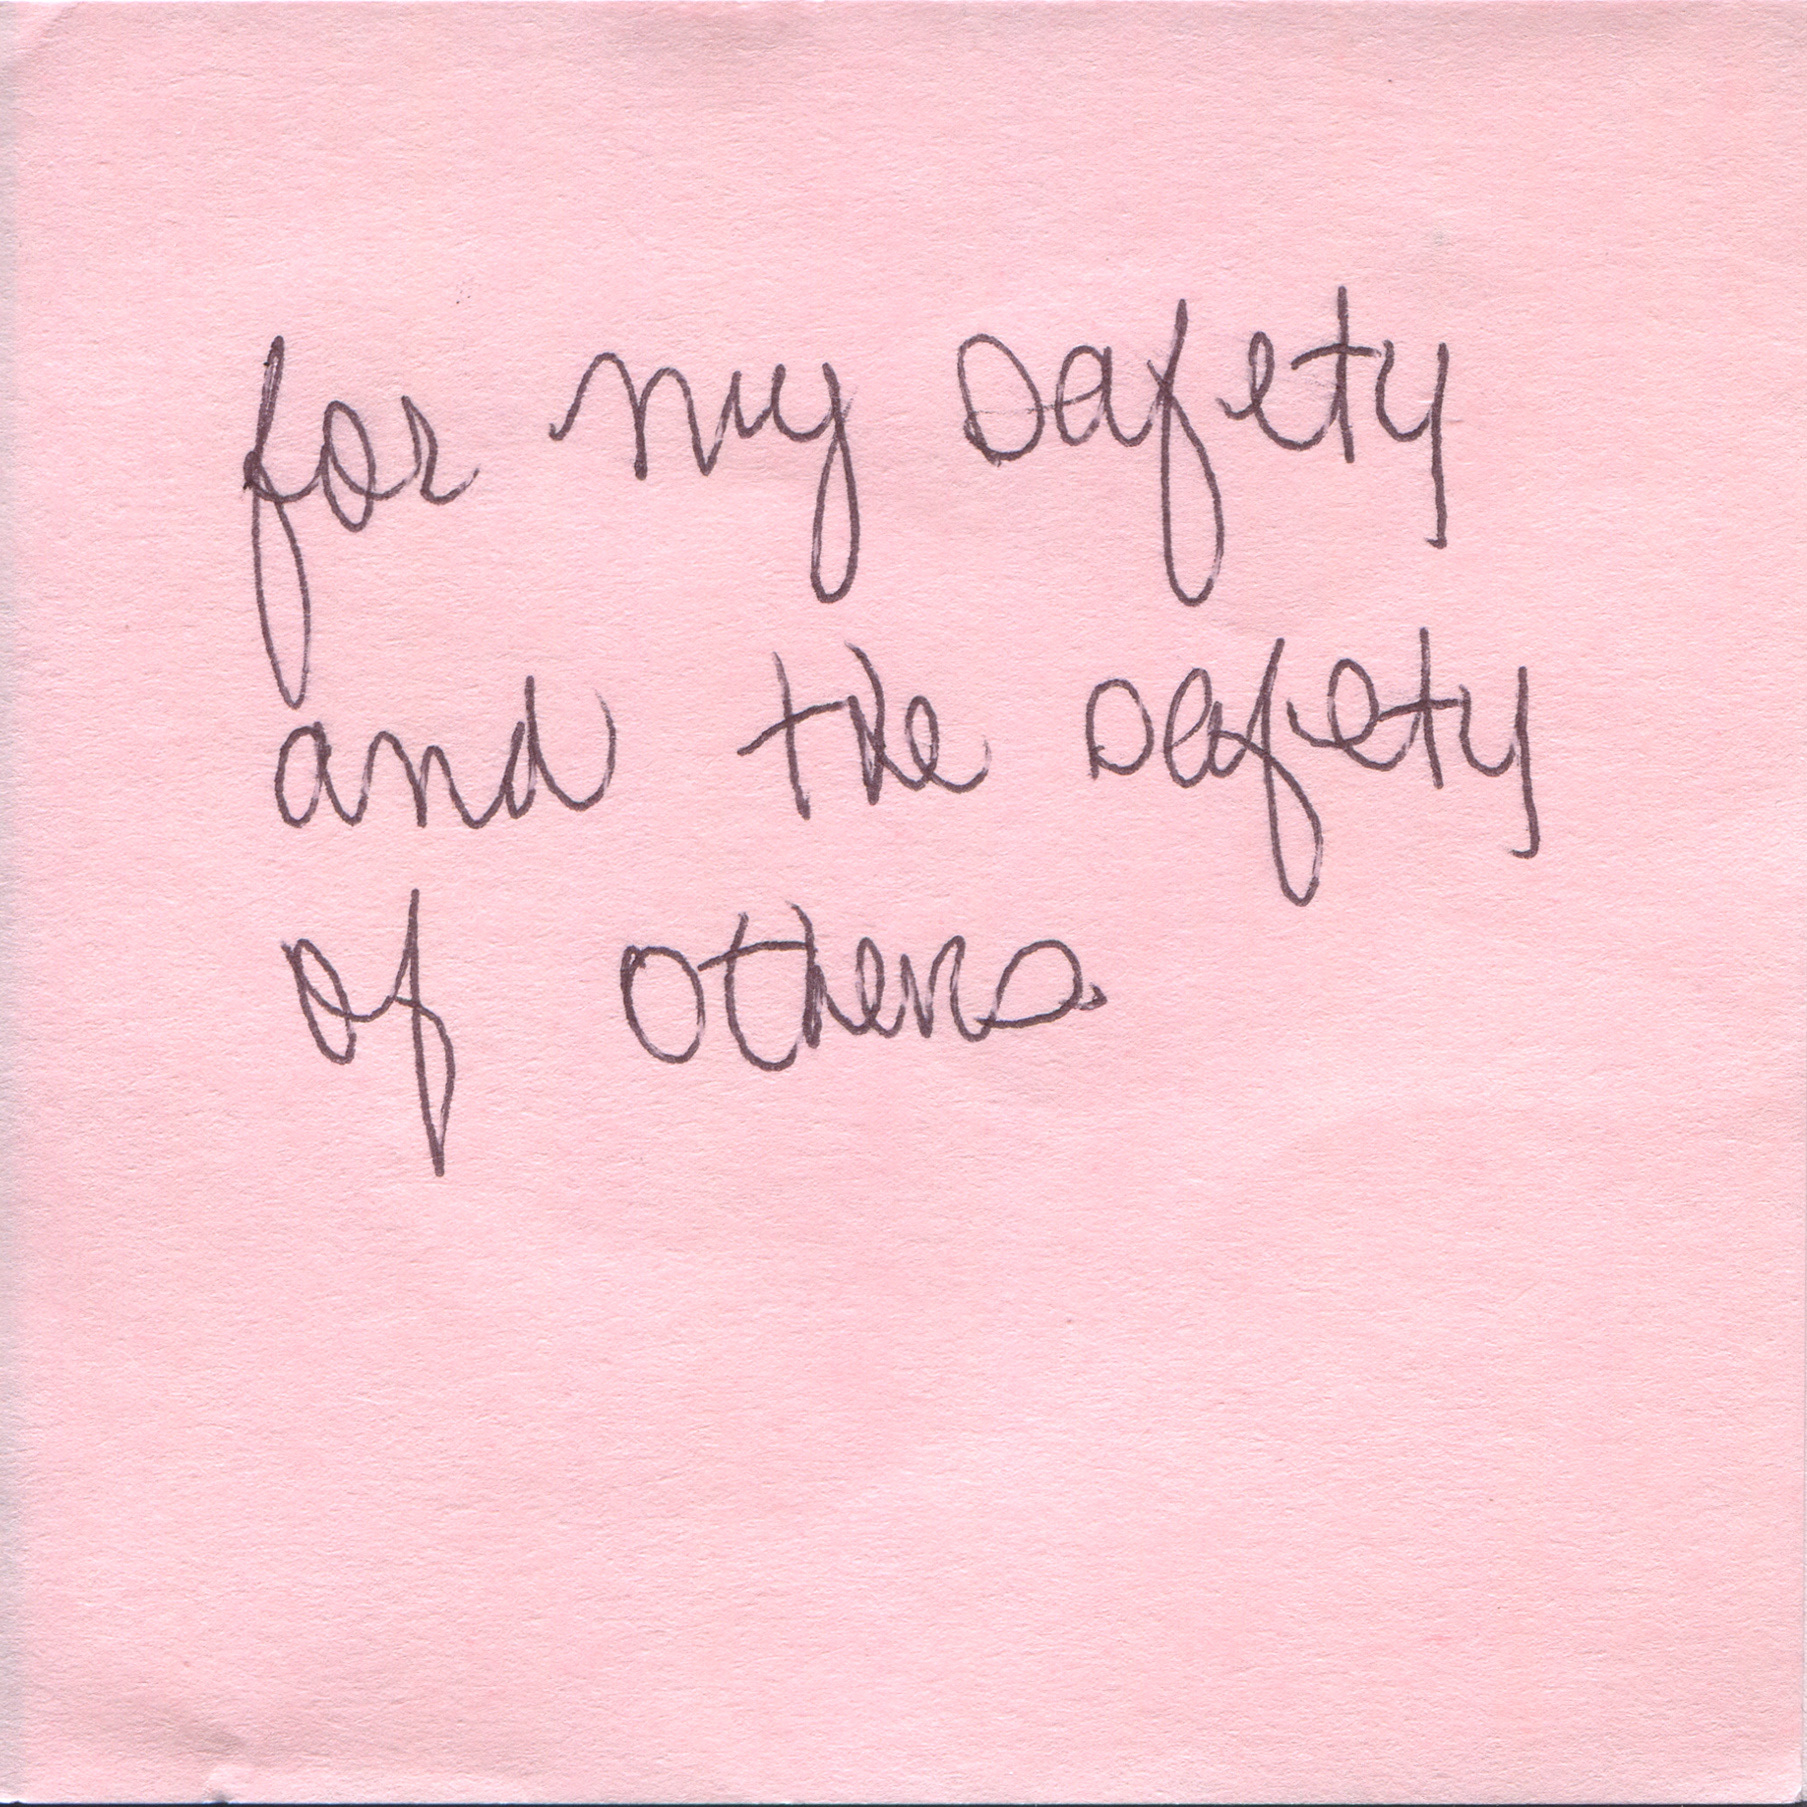 for my safety
and the safety
of others.